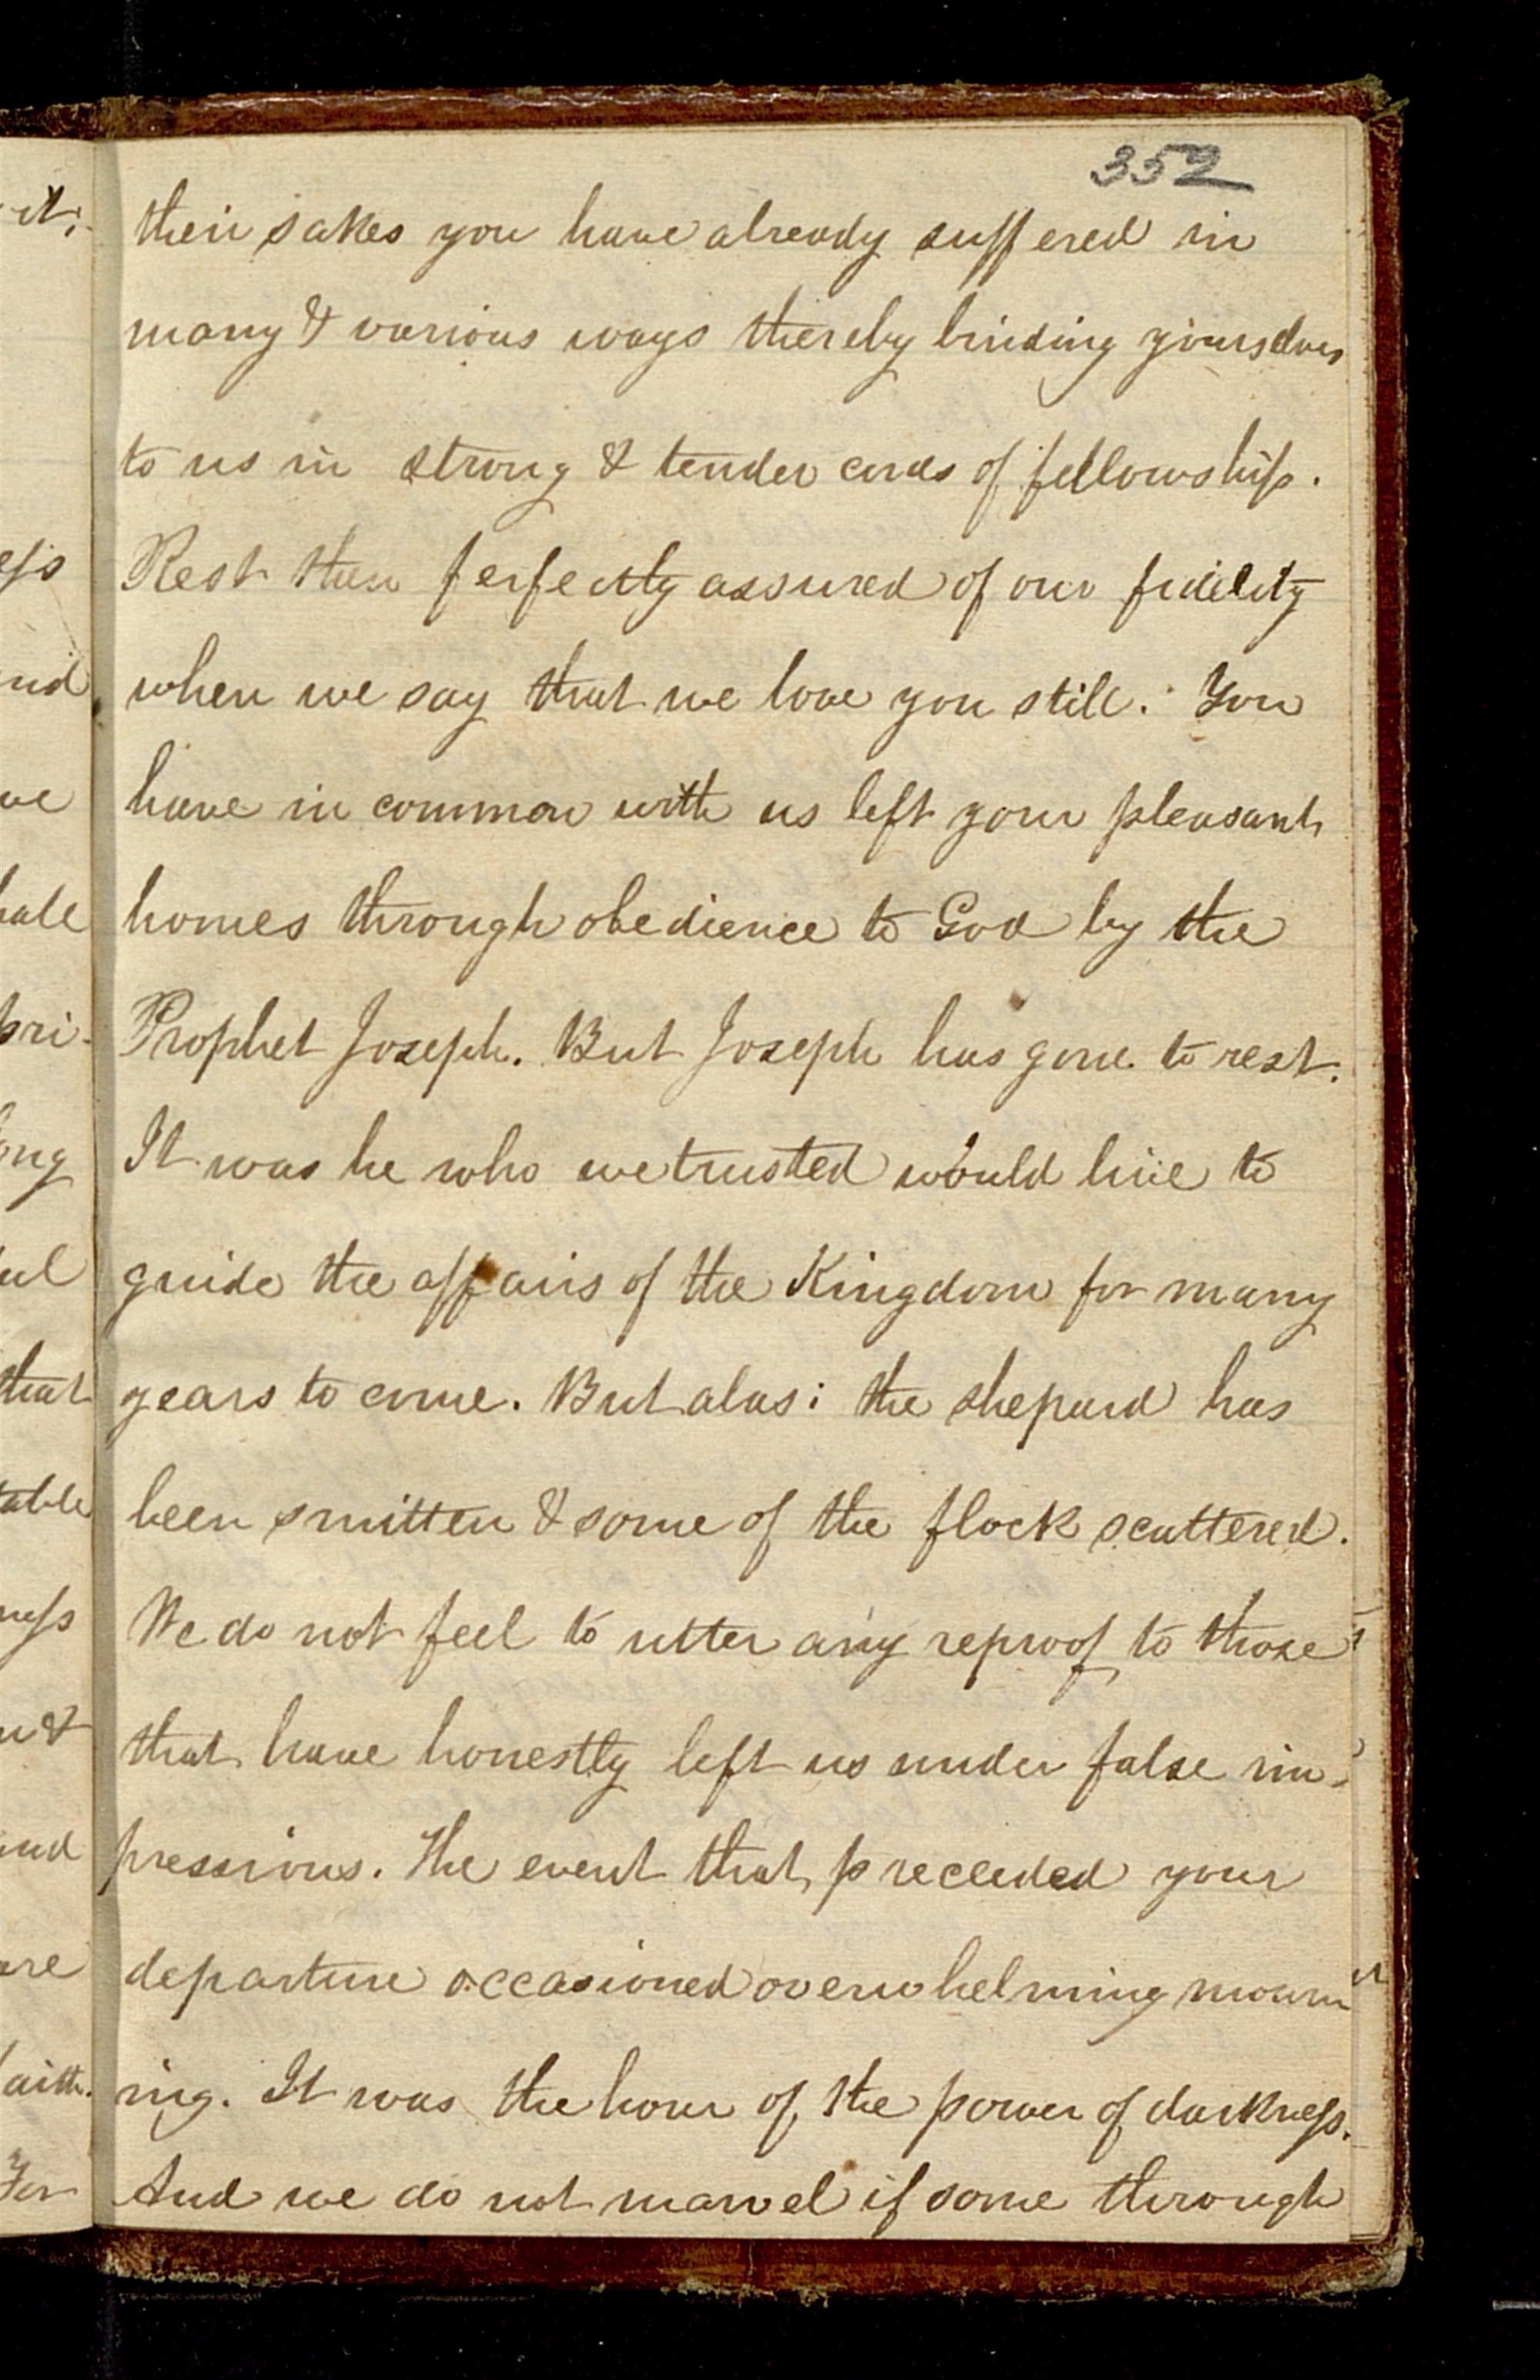 352
their sakes you have already suffered in
many & various ways thereby binding yourselves
to us in strong & tender cords of fellowship.
Rest then perfectly assured of our fidelity
when we say that we love you still. You
have in common with us left your pleasant
homes through obedience to God by the
Prophet Joseph. But Joseph has gone to rest.
It was he who we trusted would live to
guide the affairs of the Kingdom for many
years to come. But alas: the shepard has
been smitten & some of the flock scattered.
We do not feel to utter any reproof to those
that have honestly left us under false im-
pressions. The event that preceeded your
departure occasioned overwhelming mourn
ing. It was the hour of the power of darkness.
And we do not marvel if some through